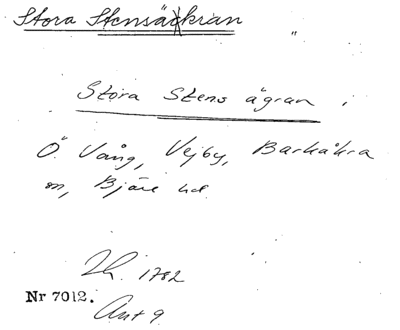 Stora Stensäckran "
Stora Stens ägran
Ö. Vång, Vejby, Barkåkra
sn, Bjäre hd
Lh. 1782
Nr 7012.
Akt 9